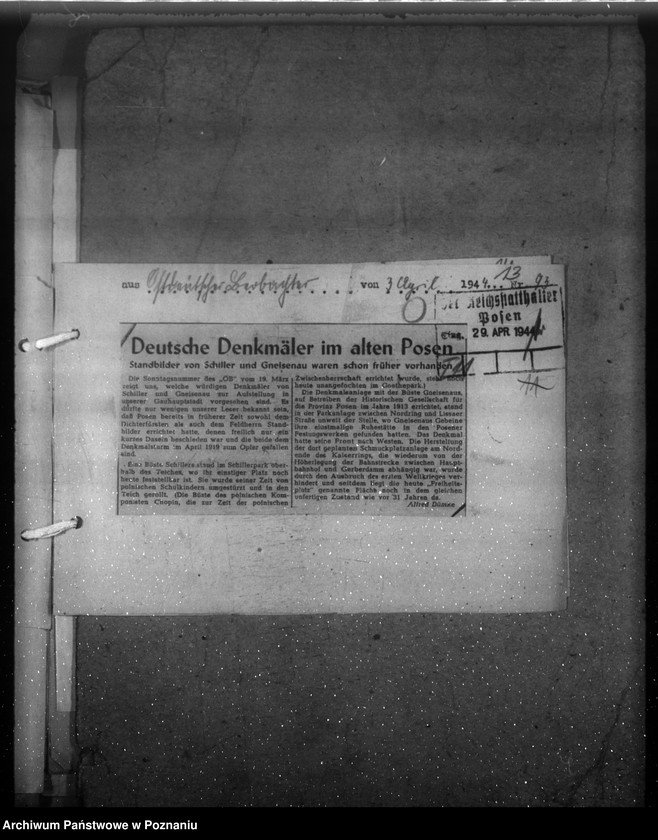 aus Ostdeutscher Beobachter von 3 April 1944 Nr. 93
13
Der Reichsstatthalter
Posen
Eing. 29. APR 1944
Deutsche Denkmäler im alten Posen
Standbilder von Schiller und Gneisenau waren schon früher vorhanden
Die Sonntagsnummer des „OB“ vom 19. März
zeigt uns, welche würdigen Denkmäler von
Schiller und Gneisenau zur Aufstellung in
unserer Gauhauptstadt vorgesehen sind. Es
dürfte nur wenigen unserer Leser bekannt sein,
daß Posen bereits in früherer Zeit sowohl dem
Dichterfürsten als auch dem Feldherrn Stand-
bilder errichtet hatte, denen freilich nur ein
kurzes Dasein beschieden war und die beide dem
Denkmalsturm im April 1919 zum Opfer gefallen
sind.
Eine Büste Schillers stand im Schillerpark ober-
halb des Teiches, wo ihr einstiger Platz noch
heute feststellbar ist. Sie wurde seiner Zeit von
polnischen Schulkindern umgestürzt und in den
Teich gerollt. (Die Büste des polnischen Kom-
ponisten Chopin, die zur Zeit der polnischen
Zwischenherrschaft errichtet wurde, steht noch
heute unangefochten im Goethepark.)
Die Denkmalsanlage mit der Büste Gneisenaus,
auf Betreiben der Historischen Gesellschaft für
die Provinz Posen im Jahre 1913 errichtet, stand
in der Parkanlage zwischen Nordring und Liessaer
Straße unweit der Stelle, wo Gneisenaus Gebeine
ihre einstmalige Ruhestätte in den Posener
Festungswerken gefunden hatten. Das Denkmal
hatte seine Front nach Westen. Die Herstellung
der dort geplanten Schmuckplatzanlage am Nord-
ende des Kaiserrings, die wiederum von der
Höherlegung der Bahnstrecke zwischen Haupt-
bahnhof und Gerberdamm abhängig war, wurde
durch den Ausbruch des ersten Weltkrieges ver-
hindert und seitdem liegt die heute „Freiheits-
platz“ genannte Fläche noch in dem gleichen
unfertigen Zustand wie vor 31 Jahren da.
Alfred Dümke
Archiwum Państwowe w Poznaniu